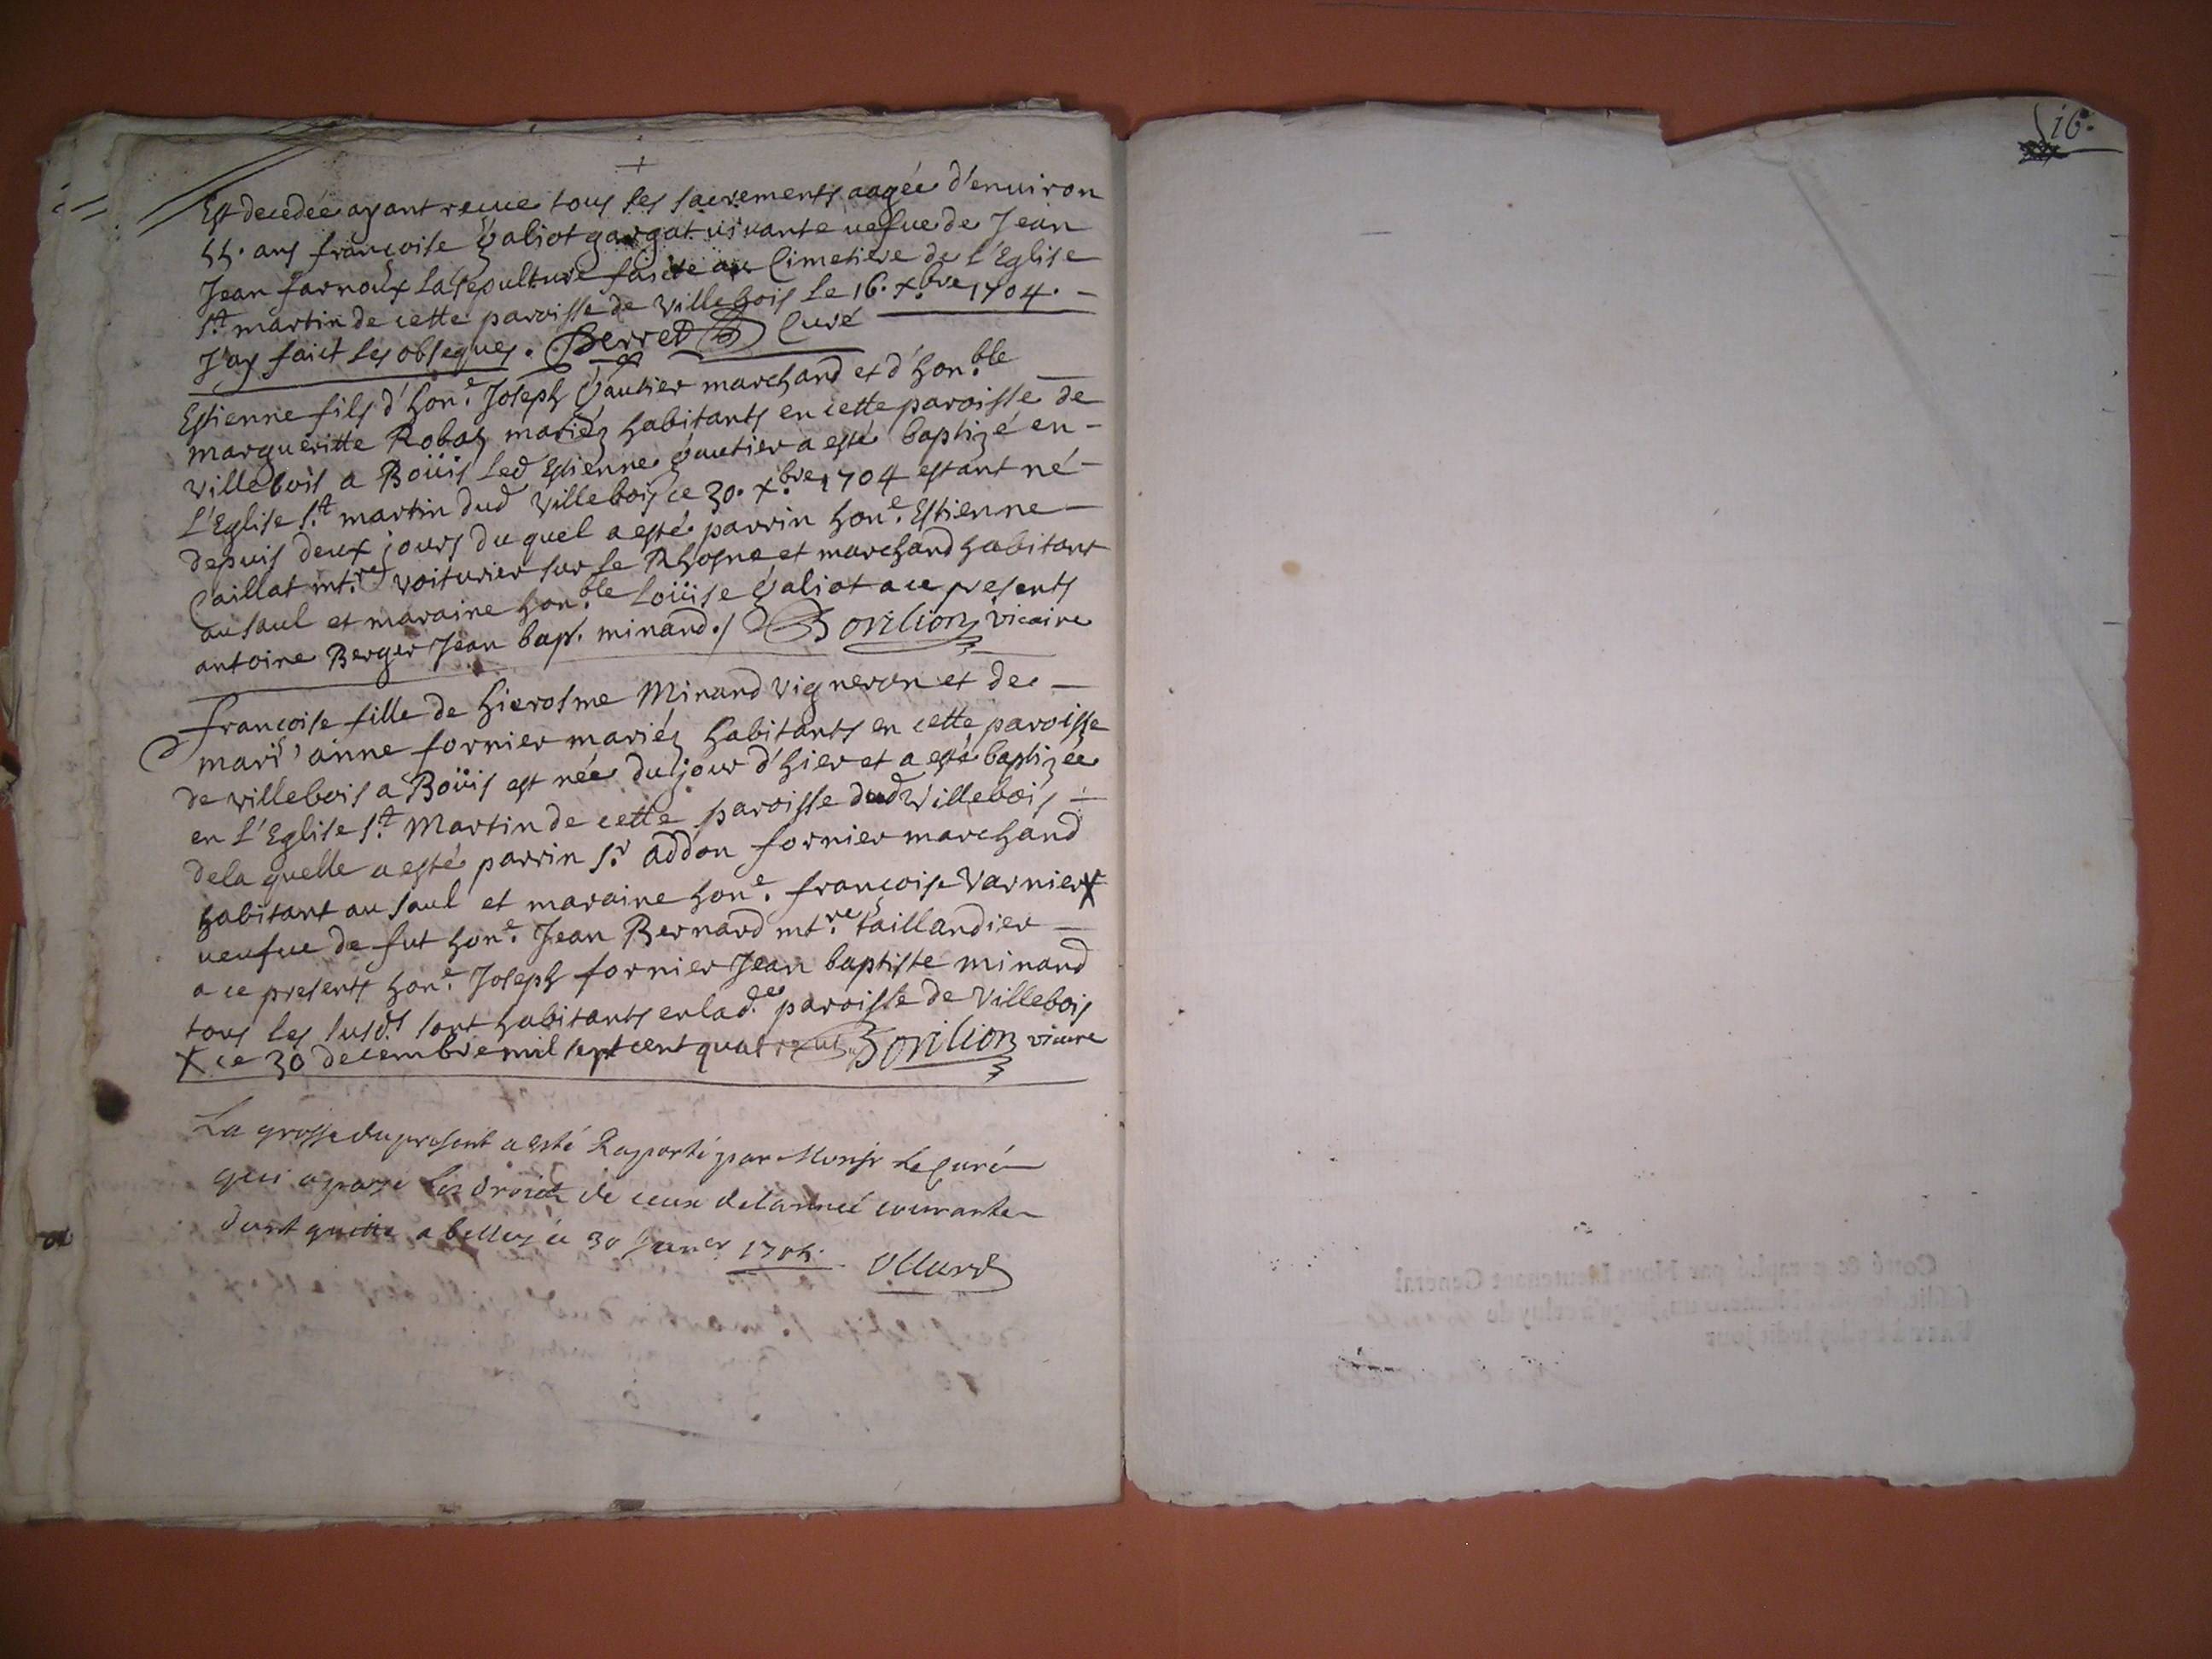 16.
Est decedée ayant recue tous les sacrements aagée d'enuiron
55. ans françoise Galiot gargat uiuante uefue de Jean
Jean farnoux La sepulture faicte au Cimetiere de l'Eglise
st. martin de cette paroisse de villebois le 16. xbre 1704. -
J'ay faict les obseques. Perret Curé
Estienne fils d'hone. Joseph Gautier marchand et d'honble
margueritte Robat mariéz habitants en cette paroisse de
villebois a Boüis Led Estienne Gautier a esté baptizé en -
l'Eglise st. martin dud villebois ce 30. xbre 1704 estant né -
depuis deux jours duquel a esté parrin hone. Estienne -
Caillat mtre. voiturier sur le Rhosne et marchand habitant
au saul et maraine honble Loüise Galiot a ce presents
antoine Berger Jean bap. minand./ Borilion vicaire
françoise fille de hierosme Minand vigneron et de -
mari' anne fornier mariéz habitants en cette paroisse
de villebois a Boüis est née du jour d'hier et a esté baptizée
en l'Eglise st. Martin de cette paroisse dud villebois -
de laquelle a esté parrin sr. addon fornier marchand
habitant au saul et maraine hone. françoise varnier X
ueufue de fut hone. Jean Bernard mtre. taillandier -
a ce presents hone. Joseph fornier Jean baptiste minand
tous les susds. sont habitants en lade. paroisse de villebois
X ce 30 decembre mil sept cent quatre Borilion vicaire
La grosse du present a esté Raporté par Monsr le Curé
qui a payé les droictz de ceux de l'anneé courante
dont quitte a belley ce 30 Janer 1705. Ollard